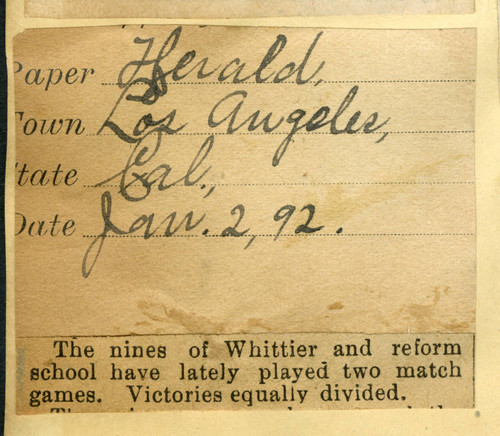 Paper Herald,
Town Los Angeles,
State Cal.,
Date Jan. 2, 92.
The nines of Whittier and reform
school have lately played two match
games. Victories equally divided.